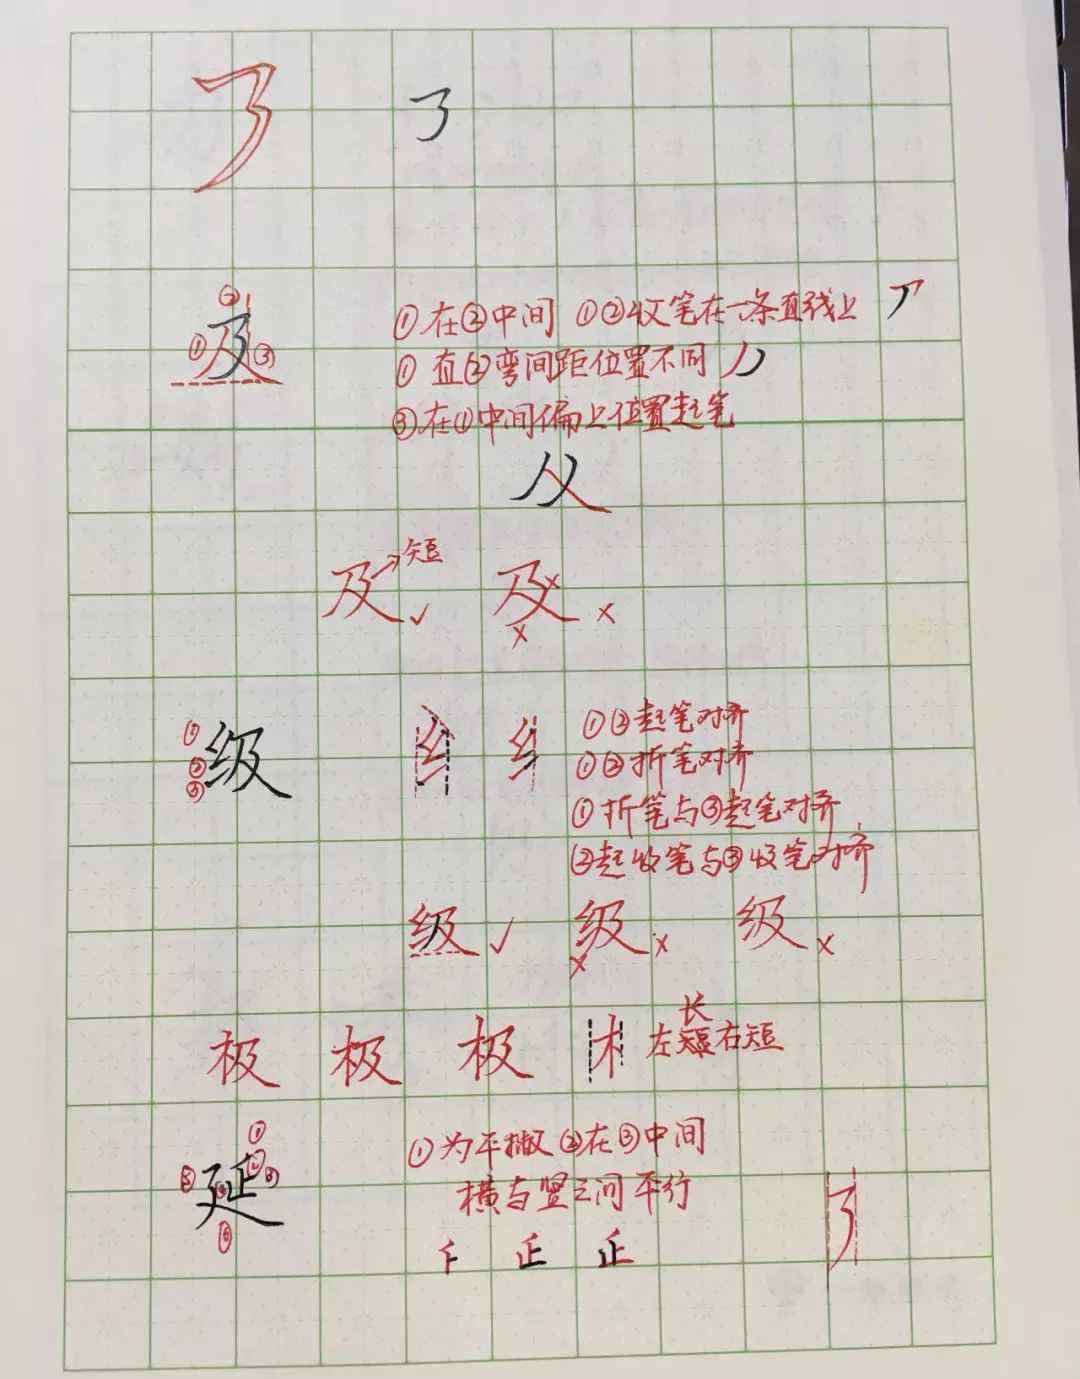 ② 
① 及 ③
①在②中间 ①②收笔在一条直线上
①直②弯间距位置不同
③在①中间偏上位置起笔
及 短 及
① ② ③ 级
①②起笔对齐
①②折笔对齐
①折笔与③起笔对齐,
②起收笔与③收笔对齐
级 级 级
极 极 极 长
左短右短
① ② ③ ⑤ 延 ⑥
①为平撇②在③中间
横与竖之间平行